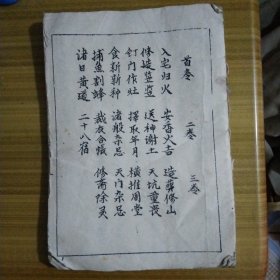 首卷 二卷 三卷
入宅归火 安香火吉 造葬修山
修 送神谢土 天坑重丧
钉门作灶 择取年月 横推周堂
食新新种 诸般杂忌 天门杂忌
捕鱼割蜂 裁衣合帐 修斋除灵
诸日黄 二十八宿